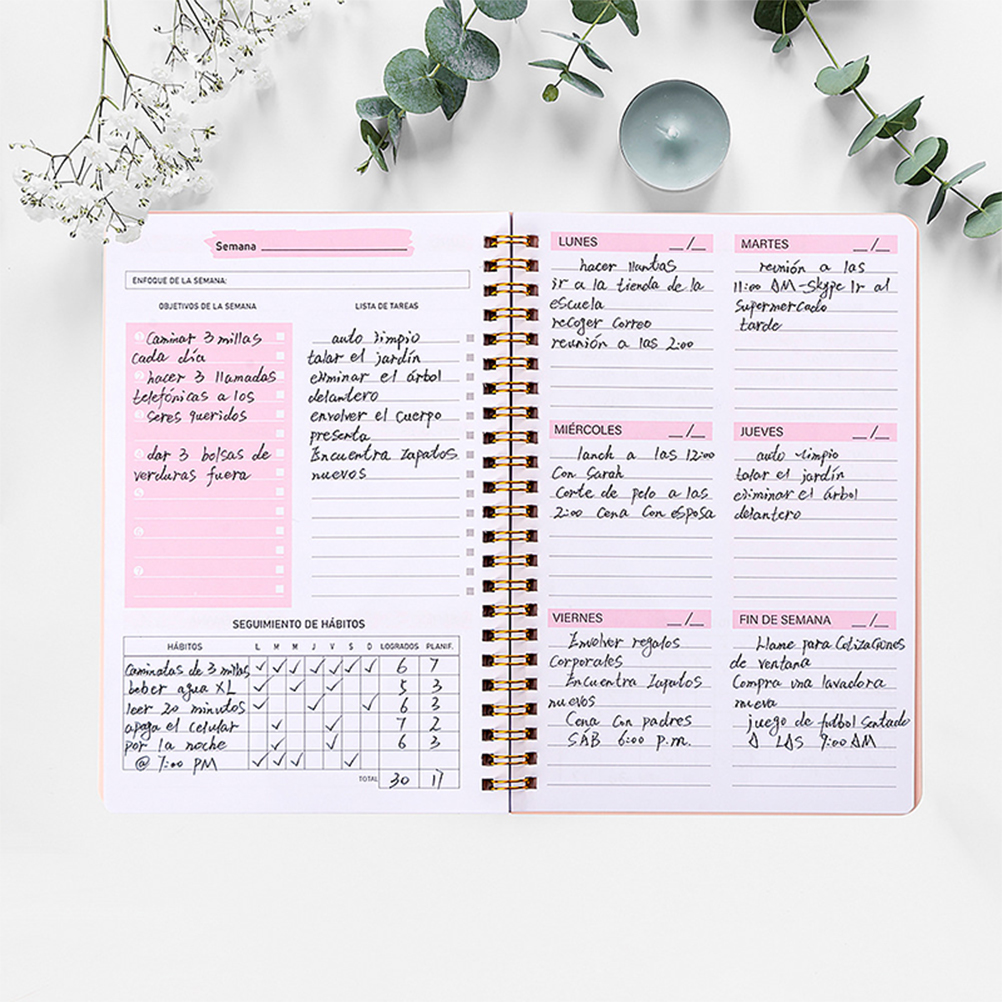 Semana
ENFOQUE DE LA SEMANA:
OBJETIVOS DE LA SEMANA
1 Caminar 3 millas
cada día
2 hacer 3 llamadas
telefónicas a los
3 seres queridos
4 dar 3 bolsas de
verduras fuera
5
6
7
LISTA DE TAREAS
auto limpio
talar el jardín
eliminar el árbol
delantero
envolver el cuerpo
presenta
Encuentra Zapatos
nuevos
SEGUIMIENTO DE HÁBITOS
HÁBITOS L M M J V S D LOGRADOS PLANIF.
Caminatas de 3 millas ✓ ✓ ✓ ✓ ✓ ✓ ✓ 6 7
beber agua XL ✓ ✓ ✓ 5 3
leer 20 minutos ✓ ✓ ✓ 6 3
apaga el celular ✓ ✓ 7 2
por la noche ✓ ✓ 6 3
@ 7:00 PM ✓ ✓ ✓ ✓
TOTAL 30 17
LUNES __/__
hacer llantas
ir a la tienda de la
escuela
recoger correo
reunión a las 2:00
MARTES __/__
reunión a las
11:00 AM-Skype Ir al
supermercado
tarde
MIÉRCOLES __/__
lanch a las 12:00
Con Sarah
Corte de pelo a las
2:00 Cena Con esposa
JUEVES __/__
auto limpio
talar el jardín
eliminar el árbol
delantero
VIERNES __/__
Envolver regalos
Corporales
Encuentra Zapatos
nuevos
Cena Con padres
SAB 6:00 p.m.
FIN DE SEMANA __/__
Llame para Cotizaciones
de ventana
Compra una lavadora
nueva
juego de futbol Sentado
A LAS 9:00 AM